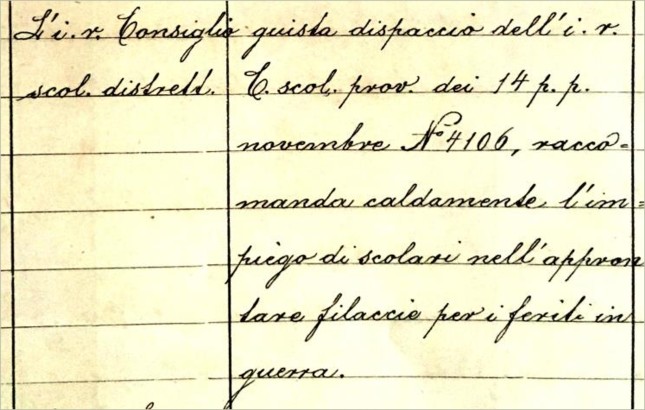 L'i. r. Consiglio
scol. distrett.
guista dispaccio dell'i. r.
C. scol. prov. dei 14 p. p.
novembre No 4106, racco=
manda caldamente l'im=
piego di scolari nell'appron
tare filaccie per i feriti in
guerra.